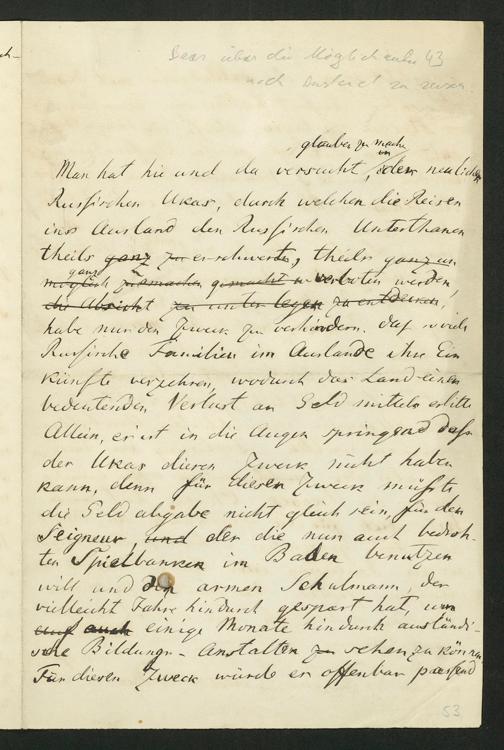 über die Möglichkeit
nach Ausland zu reisen
43
glauben zu machen
Man hat hie und da versucht, den neulichen
Russischen Ukas, durch welchen die Reisen
ins Ausland den Russischen Unterthanen
theils ganz zu erschwerte, theils ganz un
ganz
möglich zu machen gemacht u verboten werden,
die Absicht zu unter legen zu entdecken,
habe nur den Zweck zu verhindern. daß so viele
Russische Familien im Auslande ihre Ein
künfte verzehren, wodurch das Land einen
bedeutenden Verlust an Geld mitteln erlitte
Allein, es ist in die Augen springend daß
der Ukas diesen Zweck nicht haben
kann, denn für diesen Zweck müßte
die Geld abgabe nicht gleich sein, für den
Seigneur, und der die nun auch bedroh-
ten Spielbanken im Baden benutzen
will und den armen Schulmann, der
vielleicht Jahre hindurch gespart hat, um
auf auch einige Monate hindurch ausländi-
sche Bildungs-Anstalten zu sehen zu können
Für diesen Zweck würde er offenbar passend
53